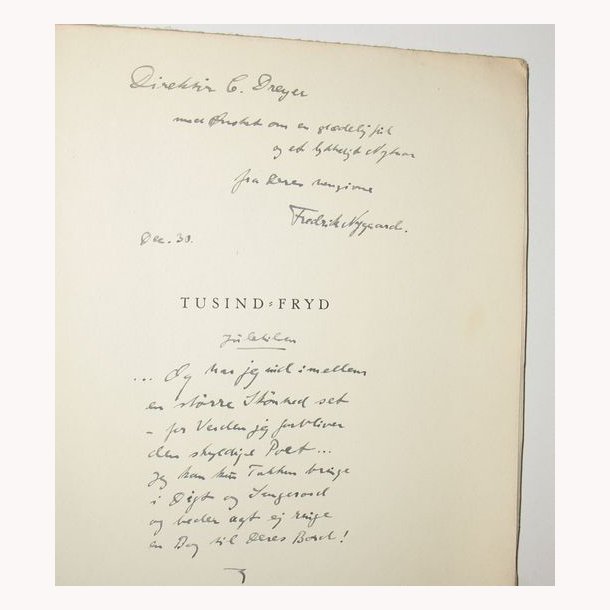 Direktör C. Dreyer
med Ønsket om en glædelig Jul
og et lykkeligt Nytaar
fra Deres hengivne
Fredrik Nygaard.
Dec. 30.
TUSIND-FRYD
... Og har jeg ind imellem
en större Skönhed set
– for Verden jeg forbliver
den skyldige Poet...
Jeg kan kun Takken bringe
i Digt og Sangerord
og beder agt ej ringe
en Dag til Deres Bord!